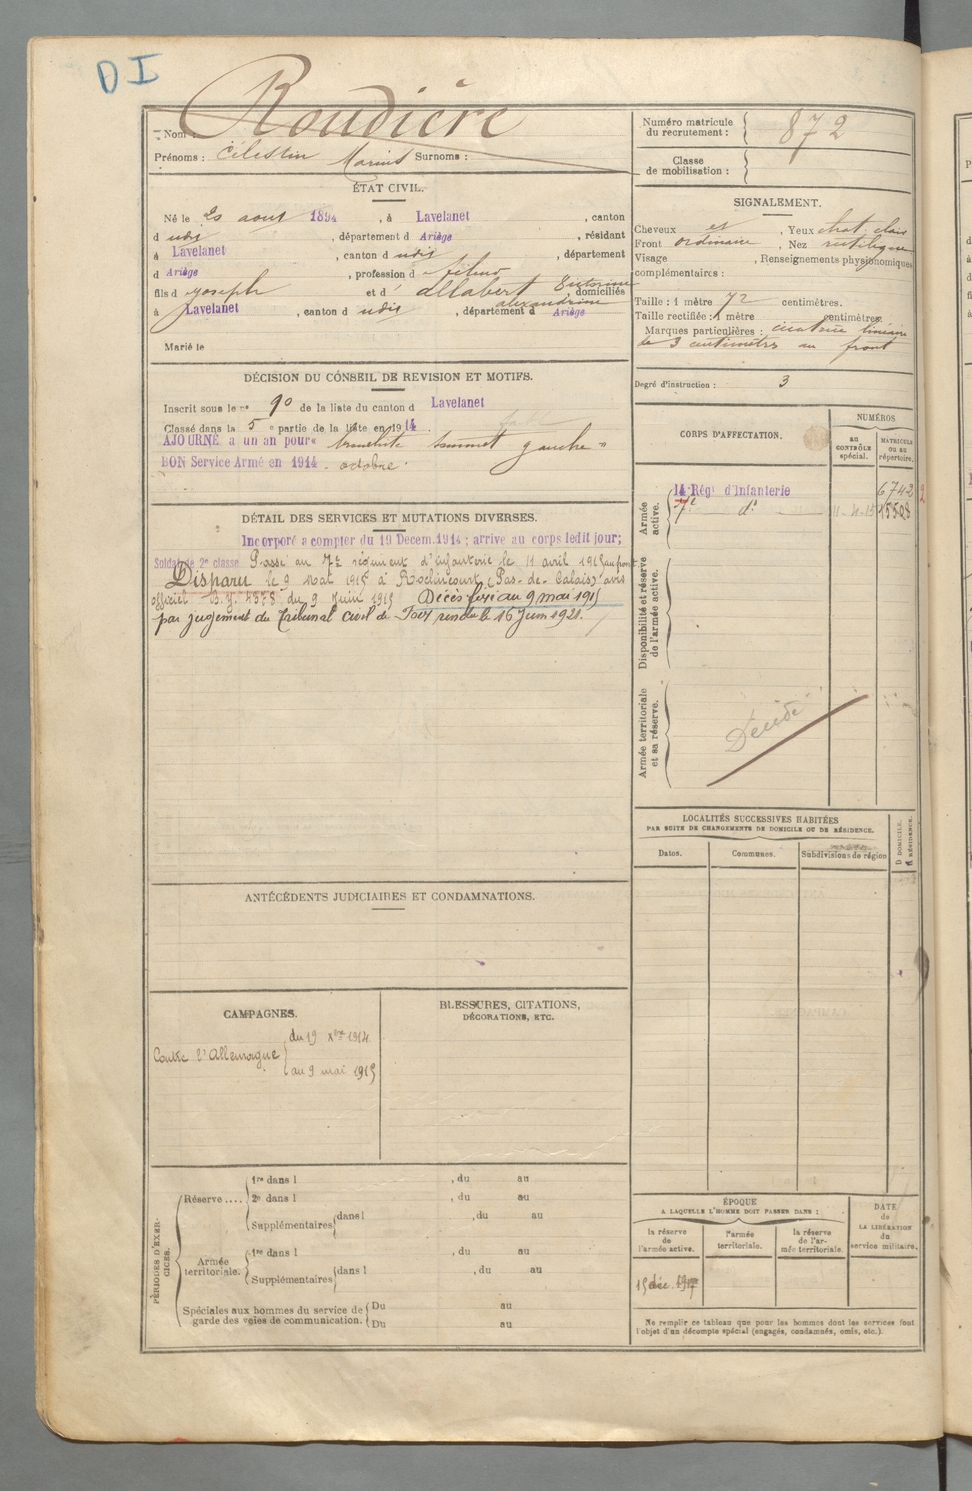 DI
Roudière
Nom :
Prénoms : Célestin Marius Surnoms :
Numéro matricule du recrutement : 872
Classe de mobilisation :
ÉTAT CIVIL.
Né le 20 aout 1894, à Lavelanet, canton
d udit, département d Ariège, résidant
à Lavelanet, canton d udit, département
d Ariège, profession d fileur
fils d Joseph et d' Allabert Victorine Alexandrine, domiciliés
à Lavelanet, canton d udit, département d Ariège
Marié le
SIGNALEMENT.
Cheveux, Yeux chat. clair
Front ordinaire, Nez rectiligne
Visage, Renseignements physionomiques
complémentaires :
Taille : 1 mètre 72 centimètres.
Taille rectifiée : 1 mètre centimètres.
Marques particulières : cicatrice linéaire
de 3 centimètres au front
Degré d'instruction : 3
DÉCISION DU CONSEIL DE REVISION ET MOTIFS.
Inscrit sous le n° 90 de la liste du canton d Lavelanet
Classé dans la 5e partie de la liste en 1914.
AJOURNÉ a un an pour « bronchite sommet gauche »
BON Service Armé en 1914 - octobre.
DÉTAIL DES SERVICES ET MUTATIONS DIVERSES.
Incorporé a compter du 19 Decem. 1914 ; arrive au corps ledit jour;
Soldat de 2e classe Passé au 7e régiment d'infanterie le 11 avril 1915 au front
Disparu le 9 mai 1915 à Roclincourt (Pas-de-Calais) avis
officiel B.J. 4578 du 9 Juin 1915 Décès fixé au 9 mai 1915
par jugement du Tribunal civil de Foix rendu le 16 Juin 1921.
CORPS D'AFFECTATION.
NUMÉROS
au CONTRÔLE spécial.
MATRICULE ou au répertoire.
Armée active.
14 Régt d'Infanterie 6742
7e d° 11-4-15
Disponibilité et réserve de l'armée active.
Armée territoriale et sa réserve.
Décédé
LOCALITÉS SUCCESSIVES HABITÉES
PAR SUITE DE CHANGEMENTS DE DOMICILE OU DE RÉSIDENCE.
Dates.
Communes.
Subdivisions de région
D DOMICILE.
R RÉSIDENCE.
ANTÉCÉDENTS JUDICIAIRES ET CONDAMNATIONS.
CAMPAGNES.
Contre l'Allemagne
du 19 Xbre 1914
au 9 mai 1915
BLESSURES, CITATIONS,
DÉCORATIONS, ETC.
PÉRIODES D'EXERCICES.
Réserve ....
1re dans l , du au
2e dans l , du au
Supplémentaires dans l , du au
Armée territoriale.
1re dans l , du au
Supplémentaires dans l , du au
Spéciales aux hommes du service de
garde des voies de communication.
Du au
Du au
ÉPOQUE
A LAQUELLE L'HOMME DOIT PASSER DANS :
la réserve de l'armée active.
l'armée territoriale.
la réserve de l'armée territoriale.
DATE de LA LIBÉRATION du service militaire.
15 déc. 1917
Ne remplir ce tableau que pour les hommes dont les services font
l'objet d'un décompte spécial (engagés, condamnés, omis, etc.).